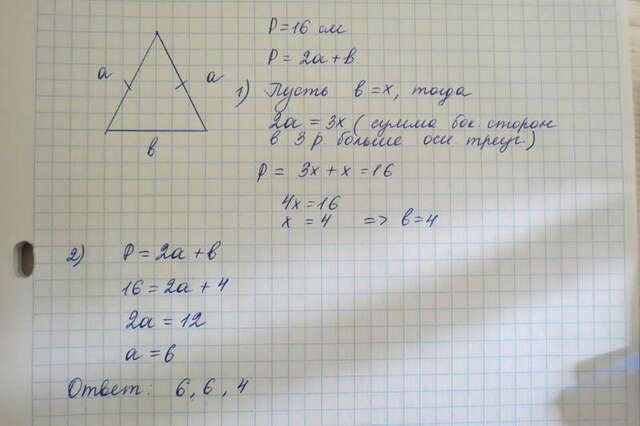 P=16 см
P=2a+в
a
a
в
1) Пусть в=x, тогда
2a=3x (сумма бок. сторон
в 3 р больше осн треуг.)
P= 3x+x=16
4x=16
x=4 => в=4
2) P=2a+в
16=2a+4
2a=12
a=6
Ответ: 6, 6, 4